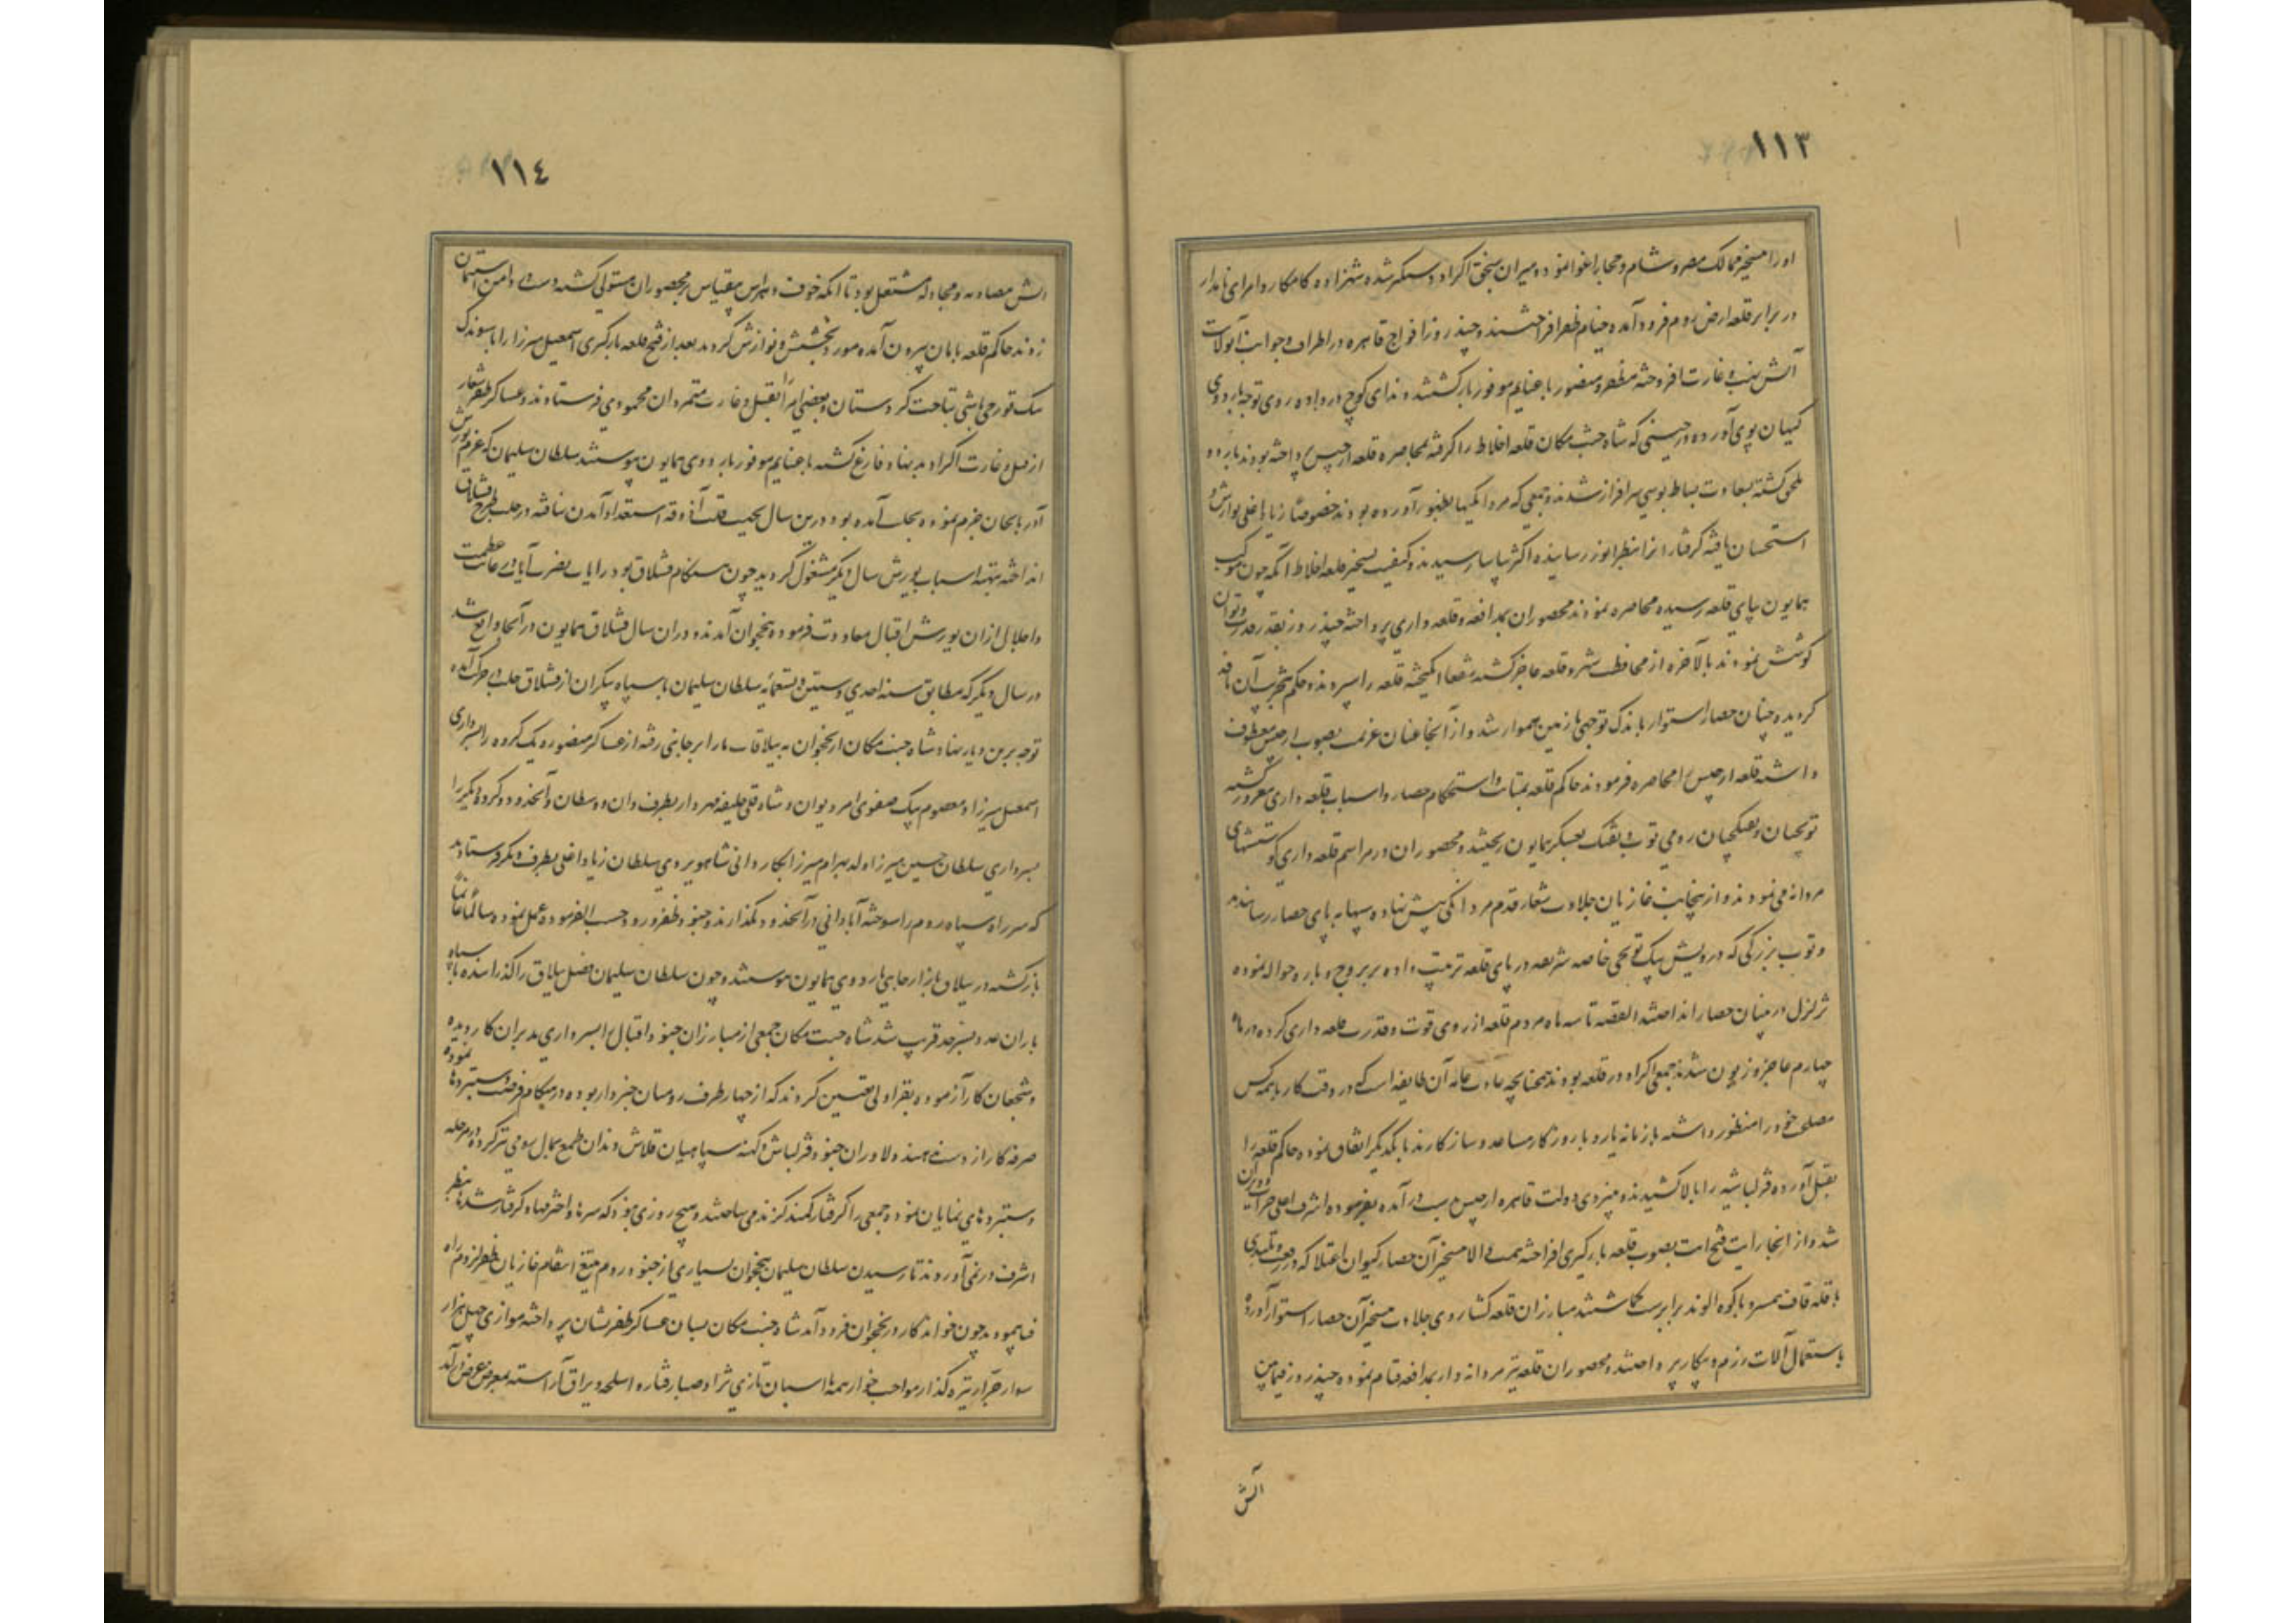 ١١٣
او را بتسخیر ممالک مصر و شام و محابا اغوا نموده میران سختی اکراد دستگیر شده شهزاده کامکار و امرای نامدار
در برابر قلعه ارض روم فرود آمده خیام ظفر افراختند و چند روز افواج قاهره در اطراف و جوانب آن ولایت
آتش نهب و غارت افروخته مظفر و منصور با غنایم موفور بازگشتند و ندای کوچ در داده روی توجه باردوی
کیهان پوی آوردند در حینی که شاه جنت مکان قلعه اخلاط را گرفته بمحاصره قلعه ارجیس پرداخته بودند باردو
ملحق گشته بسعادت بساط بوسی سرافراز شدند و جمعی که مردانگیها بظهور آورده بودند خصوصا زیاد اغلی نوازش و
استحسان یافته گرفتاران را بنظر انور رسانیده اکثر بیاسا رسیدند و کیفیت تسخیر قلعه اخلاط آنکه چون موکب
همایون بپای قلعه رسیده محاصره نمودند محصوران بمدافعه و قلعه داری پرداخته چند روز بقدر قدرت و توان
کوشش نمودند بالاخره از محافظت شهر و قلعه عاجز گشته شفعا انگیخته قلعه را سپردند و حکم بتخریب آن نافذ
گردیده چنان حصار استوار باندک توجهی با زمین هموار شد و از آنجا عنان عزیمت بصوب ارجیس معطوف
داشته قلعه ارجیس را محاصره فرمودند حاکم قلعه بمتانت و استحکام حصار و اسباب قلعه داری مغرور گشته
توپچیان و تفنگچیان رومی توپ و تفنگ بعسکر همایون ریختند و محصوران در مراسم قلعه داری کوششهای
مردانه می نمودند و از اینجانب غازیان جلادت شعار قدم مردانگی پیش نهاده سیبها به پای حصار رسانیدند
و توپ بزرگی که درویش بیک توپچی خاصه شریفه در پای قلعه ترتیب داده بر بروج و باره حواله نموده
تزلزل در بنیان حصار انداختند القصه تا سه ماه مردم قلعه از روی قوت و قدرت قلعه داری کرده در ماه
چهارم عاجز و زبون شدند جمعی اکراد در قلعه بودند همچنانچه عادت عامه آن طایفه است که در وقت کار با همه کس
مصلحت خود را منظور داشته با زمانه یار و با روزگار مساعد و سازگارند با یکدیگر اتفاق نموده حاکم قلعه را
بقتل آورده قزلباشیه را بالا کشیدند و بنیروی دولت قاهره ارجیس بدست درآمده بفرموده اشرف اعلی خراب و ویران
شد و از آنجا رایت فتح آیت بصوب قلعه بارگیری افراخته همت والا بتسخیر آن حصار کیوان اعتلا که در رفعت و بلندی
با قله قاف همسر و با کوه الوند برابرست گماشتند مبارزان قلعه گشا روی جلادت بتسخیر آن حصار استوار آورده
باستعمال آلات رزم و پیکار پرداختند و محصوران قلعه نیز مردانه وار بمدافعه قیام نموده چند روز فیمابین
آتش
١١٤
آتش مصادمه و مجادله مشتعل بود تا آنکه خوف و هراس بیقیاس بر محصوران مستولی گشته دست در دامن استیمان
زدند حاکم قلعه بامان بیرون آمده مورد بخشش و نوازش گردید بعد از فتح قلعه بارگیری اسمعیل میرزا را با سوندک
بیک قورچی باشی بتاخت کردستان و بعضی امرا بقتل و غارت متمردان محمودی فرستادند و عساکر ظفر شعار
از قتل و غارت اکراد بد نهاد فارغ گشته با غنایم موفور باردوی همایون پیوستند سلطان سلیمان که عزم یورش
آذربایجان جزم نموده بحلب آمده بود در این سال بجهت قلت آذوقه استعداد آمدن نیافته در حلب طرح قشلاق
انداخته بتهیه اسباب یورش سال دیگر مشغول گردید چون هنگام قشلاق بود رایات نصرت آیات در غایت عظمت
و اجلال از آن یورش اقبال معاودت فرموده بنخجوان آمدند و در آن سال قشلاق همایون در آنجا واقع شد
در سال دیگر که مطابق سنه احدی و ستین و تسعمائه سلطان سلیمان با سپاه بیکران از قشلاق حلب در حرکت آمده
توجه برین دیار نهاد شاه جنت مکان از نخجوان به ییلاقات بارابرجانبی رفته از عساکر منصوره یک گروه را بسرداری
اسمعیل میرزا و معصوم بیک صفوی امیر دیوان و شاه قلی خلیفه مهردار بطرف وان و وسطان و آنحدود و گروه دیگر را
بسرداری سلطان حسین میرزا ولد بهرام میرزا بکاردانی شاهویردی سلطان زیاد اغلی بطرف دیگر فرستادند
که سر راه سپاه روم را سوخته آبادانی در آنحدود نگذارند و جنود ظفر ورود حسب الفرموده عمل نموده سالما غانما
بازگشته در ییلاق بازارجایی باردوی همایون پیوستند و چون سلطان سلیمان فصل ییلاق را گذرانیده با سپاه
باران عدد بسرحد قریب شد شاه جنت مکان جمعی از مبارزان جنود اقبال را بسرداری مدبران کار دیده
و شجعان کار آزموده بقراولی تعیین کردند که از چهار طرف رومیان خبردار بوده در هنگام فرصت دستبردها نموده
صرفه کار از دست ندهند و دلاوران جنود قزلباش و کهنه سپاهیان قلاش دندان طمع بمال رومی تیز کرده در هر مرحله
دستبردهای نمایان نموده جمعی را گرفتار کمند گزند می ساختند و هیچ روزی نبود که سرها و اخترمها و گرفتار شدها بنظر
اشرف در نمی آوردند تا رسیدن سلطان سلیمان بنخجوان بسیاری از جنود روم بتیغ انتقام غازیان ظفر لزوم راه
فنا پیمودند چون خواندگار در نخجوان فرود آمد شاه جنت مکان بسان عساکر ظفر نشان پرداخته موازی چهل هزار
سوار جرار نیزه گذار مواجب خوار همه با اسبان تازی نژاد صبا رفتار و اسلحه و یراق آراسته بمعرض عرض درآمد